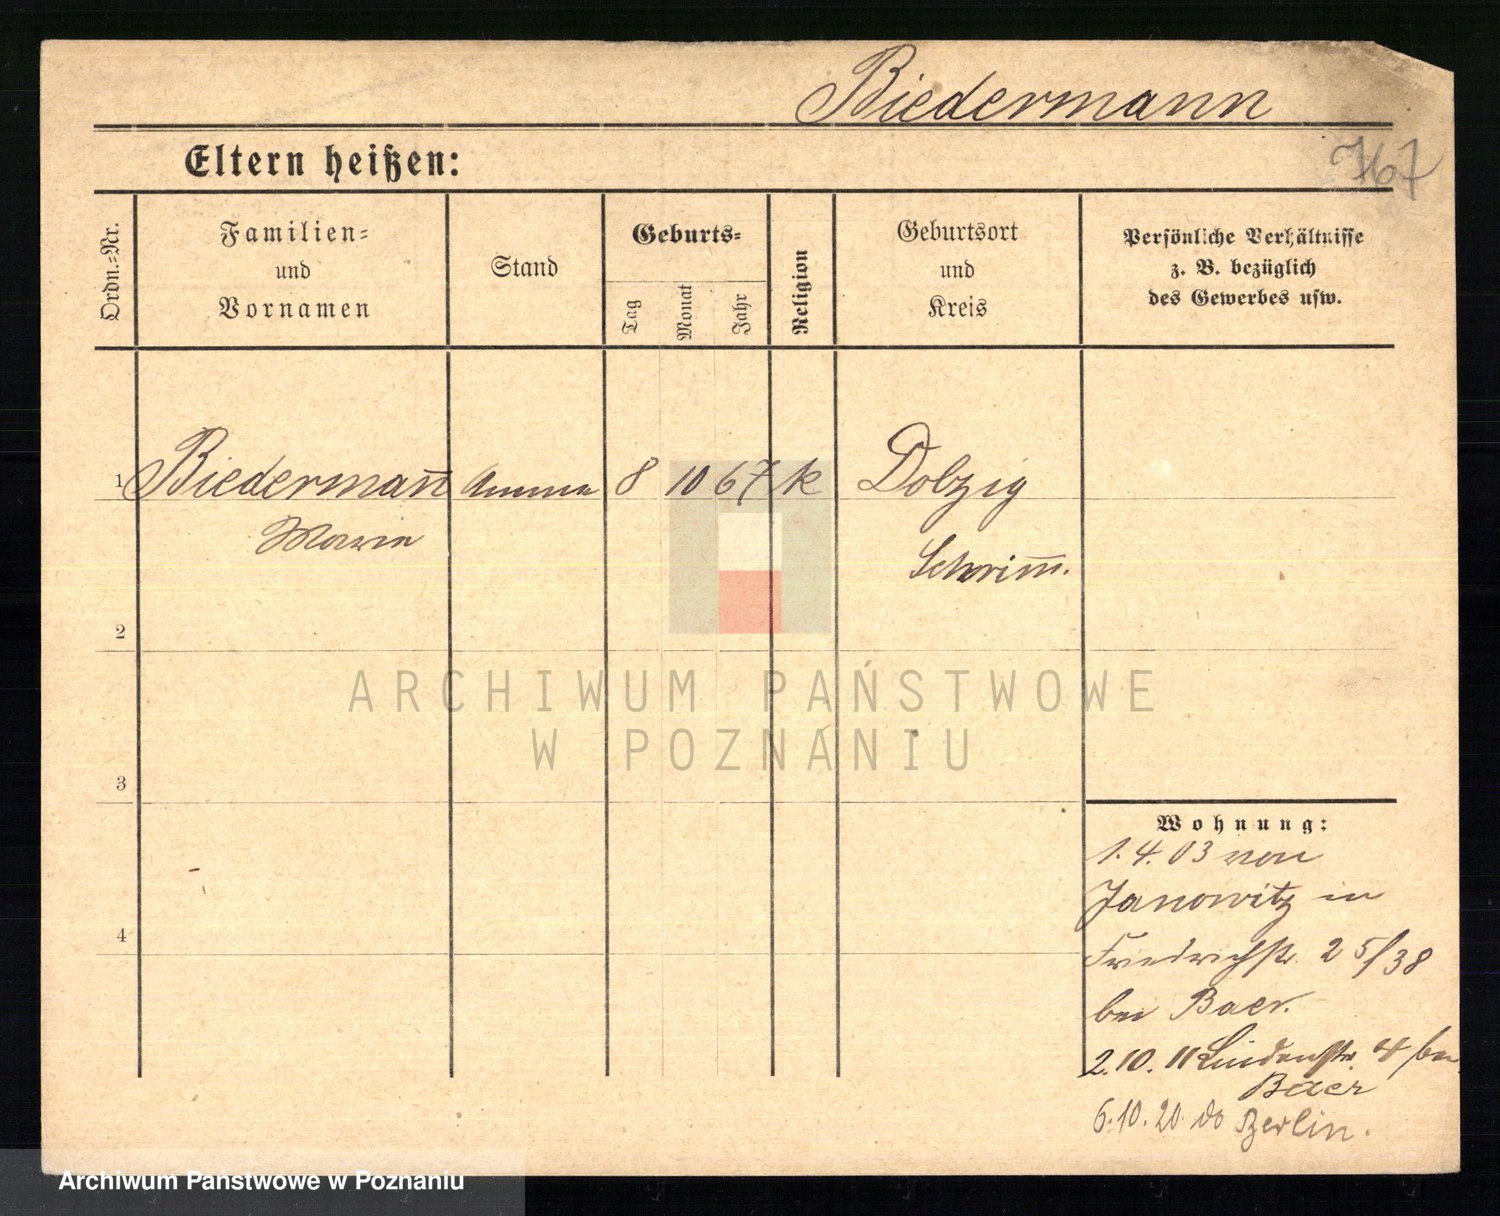 Biedermann
767
Eltern heißen:
Ordn.=Nr.
Familien=
und
Vornamen
Stand
Geburts=
Tag
Monat
Jahr
Religion
Geburtsort
und
Kreis
Persönliche Verhältnisse
z. B. bezüglich
des Gewerbes usw.
1 Biedermañ Amme 8 10 67 k Dolzig
Marie
Schrim̄.
2
3
4
ARCHIWUM PAŃSTWOWE
W POZNANIU
Wohnung:
1. 4. 03 von
Janowitz in
Friedrichstr. 25/38
bei Baer.
2. 10. 11 Lindenstr. 4 bei
Baer
6. 10. 20. do Berlin.
Archiwum Państwowe w Poznaniu